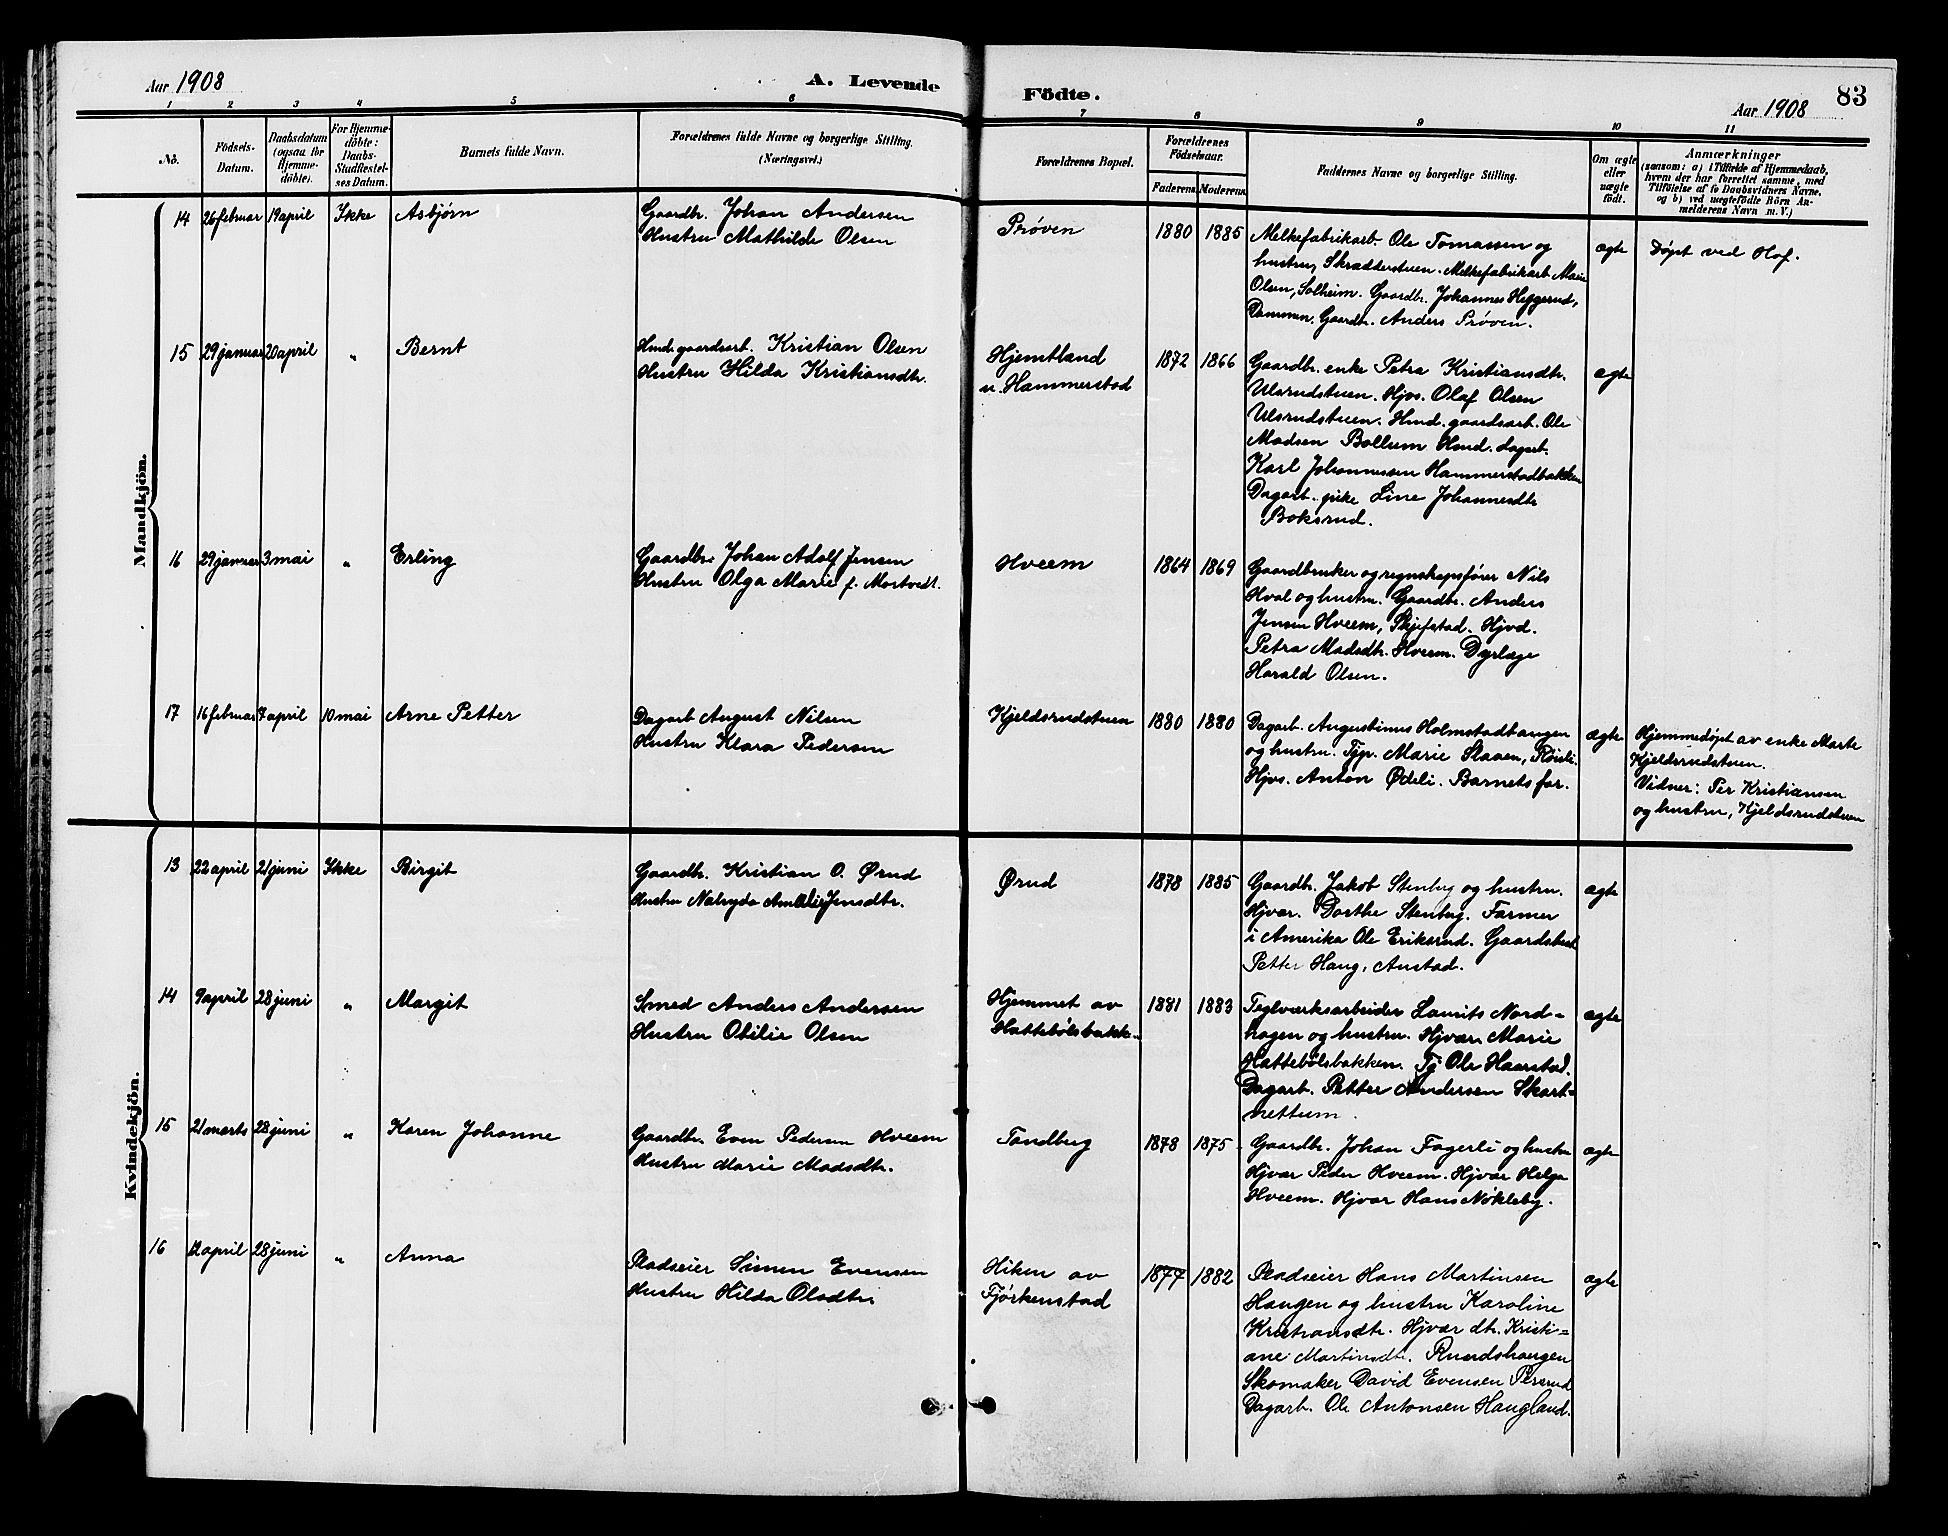 Aar 1908
A. Levende Födte.
Aar 1908
83
1 2 3 4 5 6 7 8 9 10 11
No.
Födsels-
Datum.
Daabsdatum
(ogsaa for
Hjemme-
döbte).
For Hjemme-
döbte:
Daabs-
Stadfestel-
ses Datum.
Barnets fulde Navn.
Forældrenes fulde Navne og borgerlige Stilling.
(Næringsvei.)
Forældrenes Bopæl.
Forældrenes
Födselsaar.
Faderens. Moderens.
Faddernes Navne og borgerlige Stilling.
Om ægte
eller
uægte
födt.
Anmærkninger
(saasom: a) i Tilfælde af Hjemmedaab,
hvem der har forrettet samme, med
Tilföielse af to Daabsvidners Navne,
og b) ved uægtefödte Börn An-
melderens Navn m. V.)
Mandkjön.
14 26 februar 19 april Ikke Asbjørn
Gaardbr. Johan Andersen
Hustru Mathilde Olsen
Prøven
1880 1885
Melkefabrikarb. Ole Tomassen og
hustru, Skrædderstuen. Melkefabrikarb. Marie
Olsen, Solheim. Gaardbr. Johannes Heggerud,
Dammen. Gaardbr. Anders Prøven.
ægte
Døpt ved Hof.
15 29 januar 20 april " Bernt
Hmd. gaardsarb. Kristian Olsen
Hustru Hilda Kristiansdtr.
Hjemtland
u. Hammerstad
1872 1866
Gaardbr. enke Petra Kristiansdtr.
Ulsrudstuen. Hjvs. Olaf Olsen
Ulsrudstuen. Hmd. gaardsarb. Ole
Madsen Bollum Hmd. dagarb.
Karl Johannessen Hammerstadbakken
Dagarb. pike Line Johannesdtr
Boksrud.
ægte
16 29 januar 3 mai " Erling
Gaardbr. Johan Adolf Jensen
Hustru Olga Marie f. Mortvedt.
Hveem
1864 1869
Gaardbruker og regnskapsfører Nils
Hval og hustru. Gaardbr. Anders
Jensen Hveem, Skjefstad. Hjvd.
Petra Madsdtr. Hveem. Dyrlæge
Harald Olsen.
17 16 februar 7 april 10 mai Arne Petter
Dagarb August Nilsen
Hustru Klara Pedersen
Kjeldsrudstuen
1880 1880
Dagarb. Augustinus Holmstadtangen
og hustru. Tjp. Marie Slaaen,
Hjvs. Anton Ødeli. Barnets far.
ægte
Hjemmedøpt av enke Marte
Kjeldsrudstuen.
Vidner: Per Kristiansen
og hustru, Kjeldsrudstuen
Kvindekjön.
13 22 april 21 juni Ikke Birgit
Gaardbr. Kristian O. Ørud
Hustru Amalie Jensdtr.
Ørud
1878 1885
Gaardbr. Jakob Stenberg og hustru.
Hjvar. Dorthe Stenberg. Farmer
i Amerika Ole Eriksrud. Gaardsbest.
Petter Haug, Anstad.
ægte
14 9 april 28 juni " Margit
Smed Anders Andersen
Hustru Otilie Olsen
Hjemmet av
Hattebølsbakken
1881 1883
Teglverksarbeider Laurits Nord=
hagen og hustru. Hjvar. Marie
Hattebølsbakken. Tj Ole Haarstad.
Dagarb. Petter Andersen Skart=
nettum.
ægte
15 21 marts 28 juni " Karen Johanne
Gaardbr. Even Pedersen Hveem
Hustru Marie Madsdtr.
Tandberg
1878 1875
Gaardbr. Johan Fagerli og hustru
Hjvar Peder Hveem. Hjvar Helga
Hveem. Hjvar Hans Nøkleby.
ægte
16 12 april 28 juni " Anna
Pladseier Simen Evensen
Hustru Hilda Olsdtr.
Hiken av
Fjørkenstad
1877 1882
Pladseier Hans Martinsen
Haugen og hustru Karoline
Kristiansdtr. Hjvar dtr. Kristi=
ane Martinsdtr. Ruudshaugen
Skomaker David Evensen Persrud
Dagarb. Ole Antonsen Haugland.
ægte